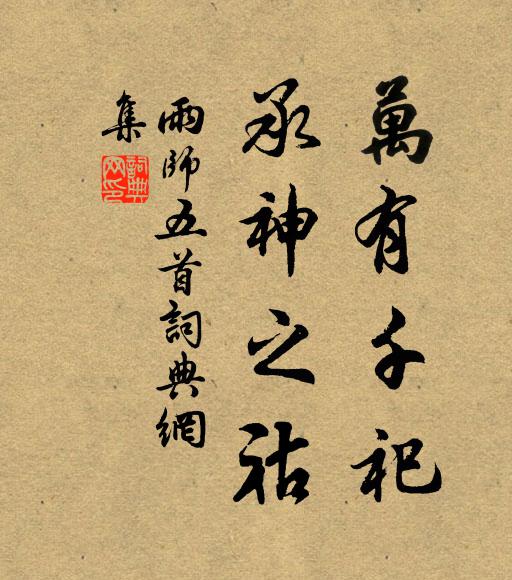 萬有千祀
承神之祜
雨師五首詞典網
集
詞典網印